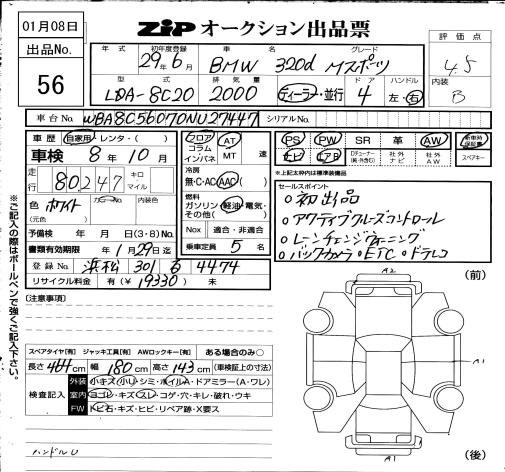 01月08日
出品No.
56
ZIP オークション出品票
評価点
4.5
内装
B
年式 初年度登録 車名 グレード
29年6月 BMW 320d Mスポーツ
型式 排気量 ドア ハンドル
LDA-8C20 2000 ディーラー・並行 4 左・右
車台No. WBA8C56070NU27447 シリアルNo.
車歴 自家用・レンタ・( )
車検 8年10月
走行 80,247 キロ マイル
色 ホワイト カラーNo. 内装色
(元色)
予備検 年 月 日(3・8)No.
書類有効期限 年 1月29日迄
登録No. 浜松 301 る 4474
リサイクル料金 有(¥ 19330) 未
フロア コラム インパネ
AT MT 速
冷房
無・C・AC・AAC
燃料
ガソリン・軽油・電気・その他( )
Nox 適合・非適合
乗車定員 5 名
PS PW SR 革 AW
ナビ エアB 社外ナビ 社外AW
新車時保証書
スペアキー
※上記太枠内は標準装備品
セールスポイント
○初出品
○アクティブクルーズコントロール
○レーンチェンジウォーニング
○バックカメラ ○ETC ○ドラレコ
※ご記入の際はボールペンで強くご記入下さい。
[注意事項]
スペアタイヤ[有] ジャッキ工具[有] AWロックキー[有] ある場合のみ○
長さ 464cm 幅 180cm 高さ 143cm (車検証上の寸法)
検査記入
外装 小キズ・小U・シミ・ホイルA・ドアミラー(A・ワレ)
室内 ヨゴレ・キズ・スレ・コゲ・穴・キレ・破れ・ウキ
FW トビ石・キズ・ヒビ・リペア跡・X要ス
ハンドルU
(前)
A2
A1
A1
(後)